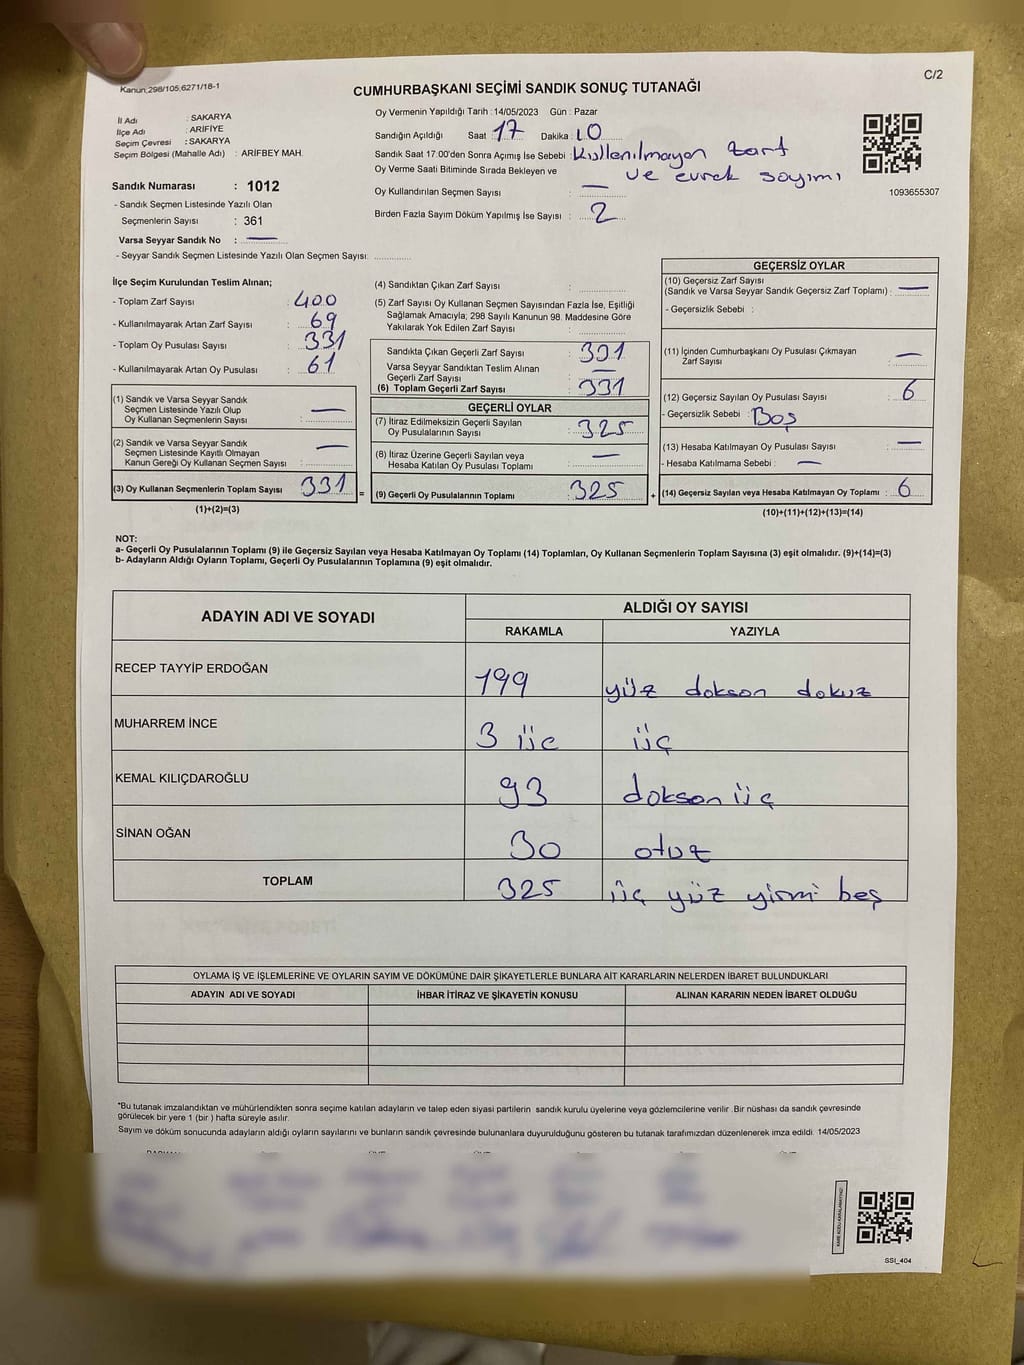 C/2
Kanun;298/105;6271/18-1
CUMHURBAŞKANI SEÇİMİ SANDIK SONUÇ TUTANAĞI
İl Adı : SAKARYA
İlçe Adı : ARİFİYE
Seçim Çevresi : SAKARYA
Seçim Bölgesi (Mahalle Adı) : ARİFBEY MAH.
Oy Vermenin Yapıldığı Tarih : 14/05/2023 Gün : Pazar
Sandığın Açıldığı Saat : 17 Dakika : 10
Sandık Saat 17.00'den Sonra Açımış İse Sebebi : Kullanılmayan zarf
ve evrak sayımı
Oy Verme Saati Bitiminde Sırada Bekleyen ve
Oy Kullandırılan Seçmen Sayısı : —
Birden Fazla Sayım Döküm Yapılmış İse Sayısı : 2
1093655307
Sandık Numarası : 1012
- Sandık Seçmen Listesinde Yazılı Olan
Seçmenlerin Sayısı : 361
Varsa Seyyar Sandık No : —
- Seyyar Sandık Seçmen Listesinde Yazılı Olan Seçmen Sayısı:
İlçe Seçim Kurulundan Teslim Alınan;
- Toplam Zarf Sayısı : 400
- Kullanılmayarak Artan Zarf Sayısı : 69
- Toplam Oy Pusulası Sayısı : 331
- Kullanılmayarak Artan Oy Pusulası : 61
(1) Sandık ve Varsa Seyyar Sandık
Seçmen Listesinde Yazılı Olup
Oy Kullanan Seçmenlerin Sayısı : —
(2) Sandık ve Varsa Seyyar Sandık
Seçmen Listesinde Kayıtlı Olmayan
Kanun Gereği Oy Kullanan Seçmen Sayısı : —
(3) Oy Kullanan Seçmenlerin Toplam Sayısı : 331 =
(1)+(2)=(3)
(4) Sandıktan Çıkan Zarf Sayısı :
(5) Zarf Sayısı Oy Kullanan Seçmen Sayısından Fazla İse, Eşitliği
Sağlamak Amacıyla; 298 Sayılı Kanunun 98. Maddesine Göre
Yakılarak Yok Edilen Zarf Sayısı :
Sandıkta Çıkan Geçerli Zarf Sayısı : 331
Varsa Seyyar Sandıktan Teslim Alınan
Geçerli Zarf Sayısı : —
(6) Toplam Geçerli Zarf Sayısı : 331
GEÇERLİ OYLAR
(7) İtiraz Edilmeksizin Geçerli Sayılan
Oy Pusulalarının Sayısı : 325
(8) İtiraz Üzerine Geçerli Sayılan veya
Hesaba Katılan Oy Pusulası Toplamı : —
(9) Geçerli Oy Pusulalarının Toplamı : 325 +
GEÇERSİZ OYLAR
(10) Geçersiz Zarf Sayısı
(Sandık ve Varsa Seyyar Sandık Geçersiz Zarf Toplamı) : —
- Geçersizlik Sebebi :
(11) İçinden Cumhurbaşkanı Oy Pusulası Çıkmayan
Zarf Sayısı : —
(12) Geçersiz Sayılan Oy Pusulası Sayısı : 6
- Geçersizlik Sebebi : Boş
(13) Hesaba Katılmayan Oy Pusulası Sayısı : —
- Hesaba Katılmama Sebebi : —
(14) Geçersiz Sayılan veya Hesaba Katılmayan Oy Toplamı : 6
(10)+(11)+(12)+(13)=(14)
NOT:
a- Geçerli Oy Pusulalarının Toplamı (9) ile Geçersiz Sayılan veya Hesaba Katılmayan Oy Toplamı (14) Toplamları, Oy Kullanan Seçmenlerin Toplam Sayısına (3) eşit olmalıdır. (9)+(14)=(3)
b- Adayların Aldığı Oyların Toplamı, Geçerli Oy Pusulalarının Toplamına (9) eşit olmalıdır.
ADAYIN ADI VE SOYADI ALDIĞI OY SAYISI
RAKAMLA YAZIYLA
RECEP TAYYİP ERDOĞAN 199 yüz dokson dokuz
MUHARREM İNCE 3 üç üç
KEMAL KILIÇDAROĞLU 93 dokson üç
SİNAN OĞAN 30 otuz
TOPLAM 325 üç yüz yirmi beş
OYLAMA İŞ VE İŞLEMLERİNE VE OYLARIN SAYIM VE DÖKÜMÜNE DAİR ŞİKAYETLERLE BUNLARA AİT KARARLARIN NELERDEN İBARET BULUNDUKLARI
ADAYIN ADI VE SOYADI İHBAR İTİRAZ VE ŞİKAYETİN KONUSU ALINAN KARARIN NEDEN İBARET OLDUĞU
*Bu tutanak imzalandıktan ve mühürlendikten sonra seçime katılan adayların ve talep eden siyasi partilerin sandık kurulu üyelerine veya gözlemcilerine verilir .Bir nüshası da sandık çevresinde
görülecek bir yere 1 (bir ) hafta süreyle asılır.
Sayım ve döküm sonucunda adayların aldığı oyların sayılarını ve bunların sandık çevresinde bulunanlara duyurulduğunu gösteren bu tutanak tarafımızdan düzenlenerek imza edildi. 14/05/2023
SSI_404